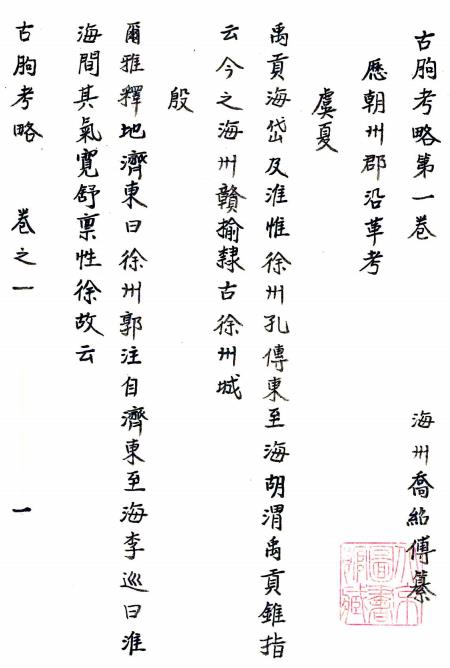 古朐考略第一卷
海州喬紹傅纂
歷朝州郡沿革考
虞夏
禹貢海岱及淮惟徐州孔傳東至海胡渭禹貢錐指
云今之海州贛揄隸古徐州域
殷
爾雅釋地濟東曰徐州郭注自濟東至海李巡曰淮
海間其氣寬舒禀性徐故云
古朐考略 卷之一 一